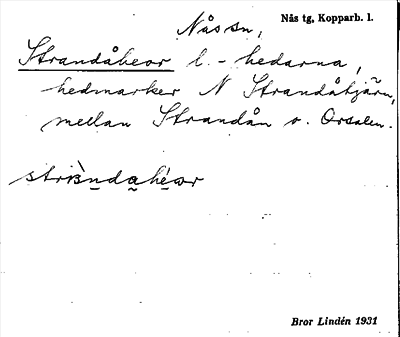 Nås sn,
Nås tg, Kopparb. l.
Strandåheor l. -hedarna,
hedmarker N Strandåtjärn,
mellan Strandån o. Orsalen.
Bror Lindén 1931